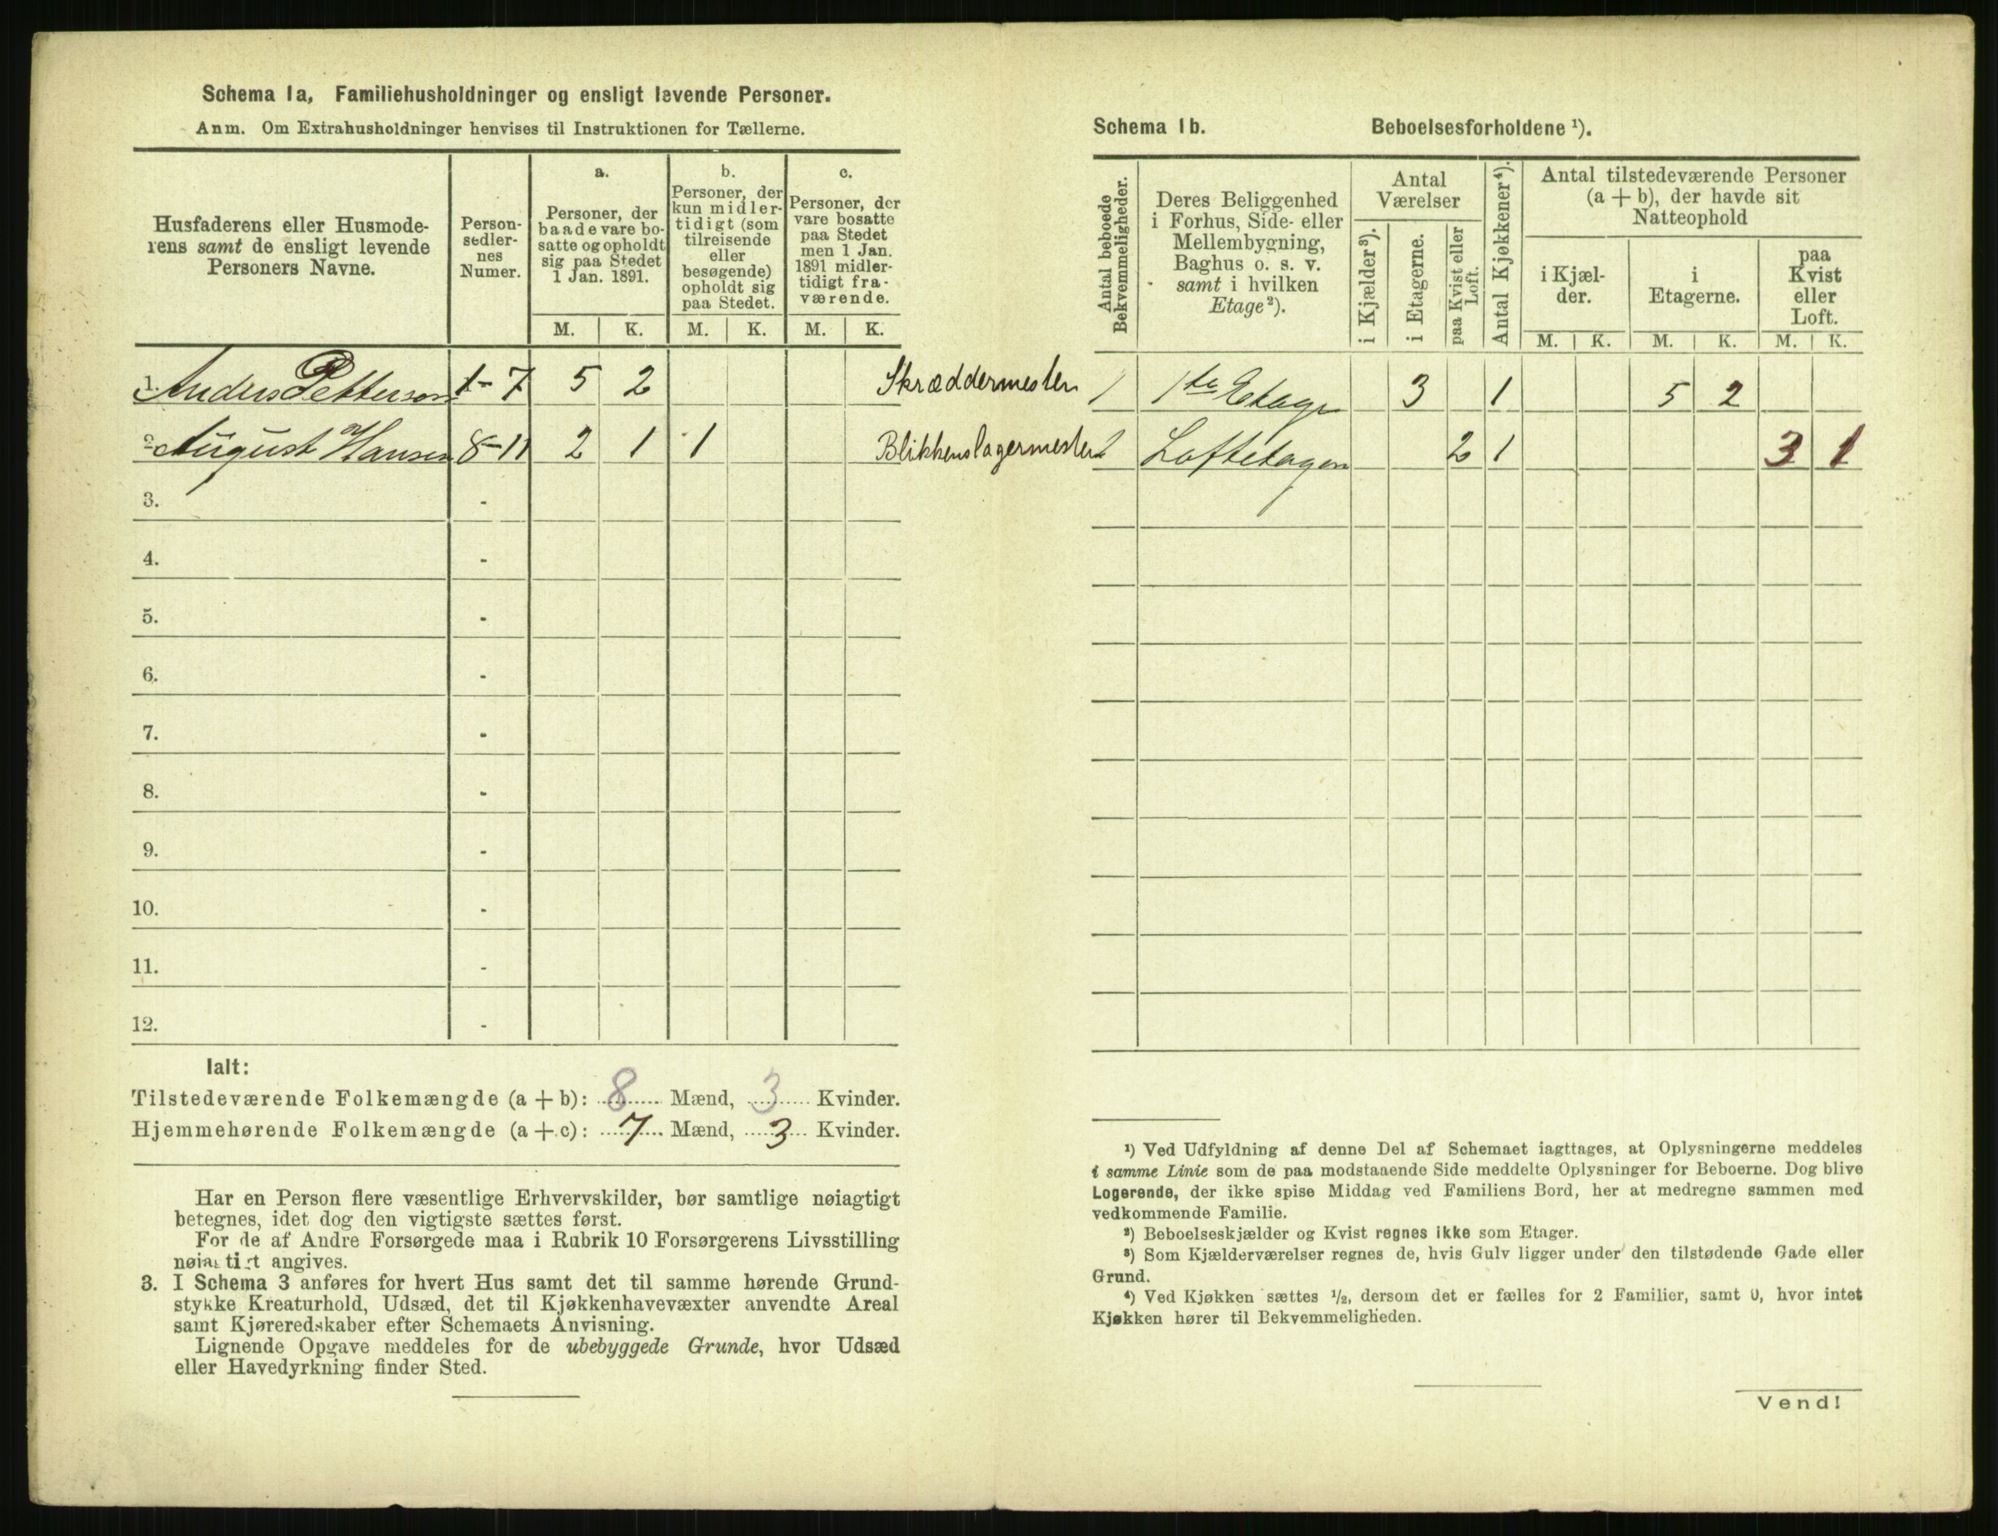 Schema 1a, Familiehusholdninger og ensligt levende Personer.
Anm. Om Extrahusholdninger henvises til Instruktionen for Tællerne.
Husfaderens eller Husmode-
rens samt de ensligt levende
Personers Navne.
Person-
sedler-
nes
Numer.
a.
Personer, der
baade vare bo-
satte og opholdt
sig paa Stedet
1 Jan. 1891.
b.
Personer, der
kun midler-
tidigt (som
tilreisende
eller
besøgende)
opholdt sig
paa Stedet.
c.
Personer, der
vare bosatte
paa Stedet
men 1 Jan.
1891 midler-
tidigt fra-
værende.
M. K. M. K. M. K.
1. Anders Petterson 1-7 5 2 Skræddermester
2. August Hansen 8-11 2 1 1 Blikkenslagermester
3. -
4. -
5. -
6. -
7. -
8. -
9. -
10. -
11. -
12. -
Ialt:
Tilstedeværende Folkemængde (a + b): 8 Mænd, 3 Kvinder.
Hjemmehørende Folkemængde (a + c): 7 Mænd, 3 Kvinder.
Har en Person flere væsentlige Erhvervskilder, bør samtlige nøiagtigt
betegnes, idet dog den vigtigste sættes først.
For de af Andre Forsørgede maa i Rubrik 10 Forsørgerens Livsstilling
nøiagtigt angives.
3. I Schema 3 anføres for hvert Hus samt det til samme hørende Grund-
stykke Kreaturhold, Udsæd, det til Kjøkkenhavevæxter anvendte Areal
samt Kjøreredskaber efter Schemaets Anvisning.
Lignende Opgave meddeles for de ubebyggede Grunde, hvor Udsæd
eller Havedyrkning finder Sted.
Schema 1b. Beboelsesforholdene ¹).
Antal beboede
Bekvemmeligheder.
Deres Beliggenhed
i Forhus, Side- eller
Mellembygning,
Baghus o. s. v.
samt i hvilken
Etage²).
Antal
Værelser
i Kjælder³).
i Etagerne.
paa Kvist eller
Loft.
Antal Kjøkkener⁴).
Antal tilstedeværende Personer
(a + b), der havde sit
Natteophold
i Kjæl-
der.
i
Etagerne.
paa
Kvist
eller
Loft.
M. K. M. K. M. K.
1 1ste Etage 3 1 5 2
1 Loftetagen 2 1 3 1
¹) Ved Udfyldning af denne Del af Schemaet iagttages, at Oplysningerne meddeles
i samme Linie som de paa modstaaende Side meddelte Oplysninger for Beboerne. Dog blive
Logerende, der ikke spise Middag ved Familiens Bord, her at medregne sammen med
vedkommende Familie.
²) Beboelseskjælder og Kvist regnes ikke som Etager.
³) Som Kjælderværelser regnes de, hvis Gulv ligger under den tilstødende Gade eller
Grund.
⁴) Ved Kjøkken sættes ½, dersom det er fælles for 2 Familier, samt 0, hvor intet
Kjøkken hører til Bekvemmeligheden.
Vend!